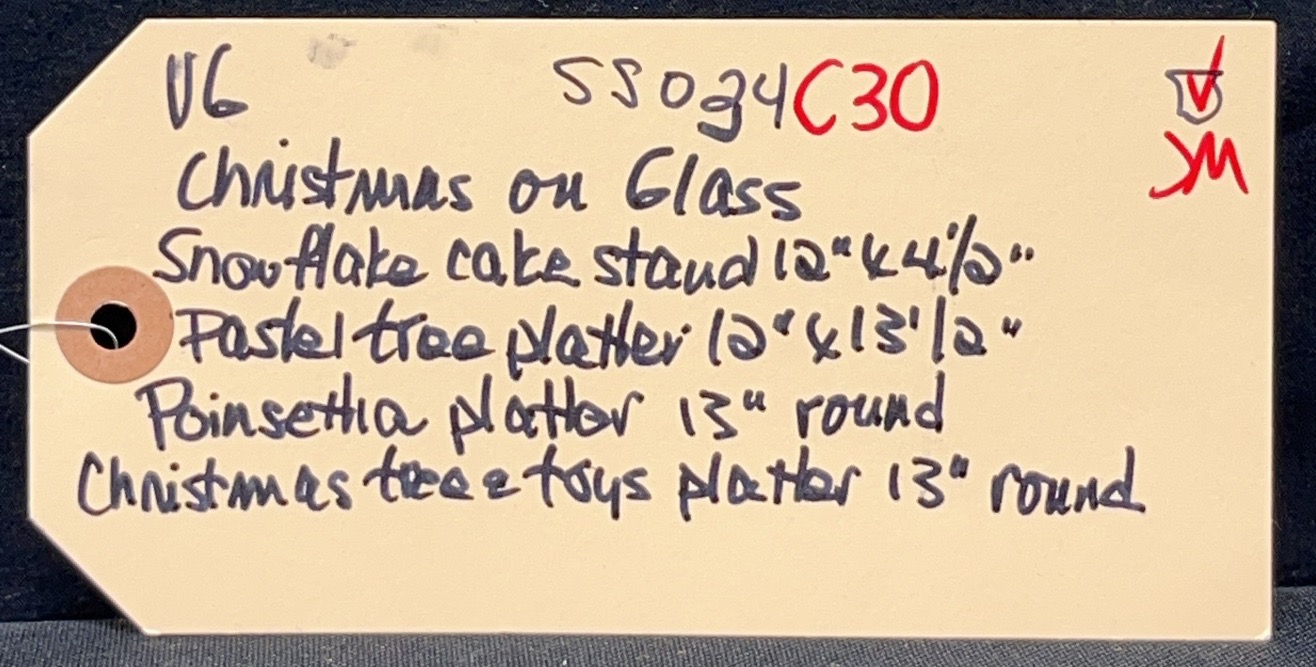 V6 SS034C30
JM
Christmas on Glass
Snowflake cake stand 12" x 4 1/2"
Pastel tree platter 12" x 13 1/2"
Poinsettia platter 13" round
Christmas tree & toys platter 13" round